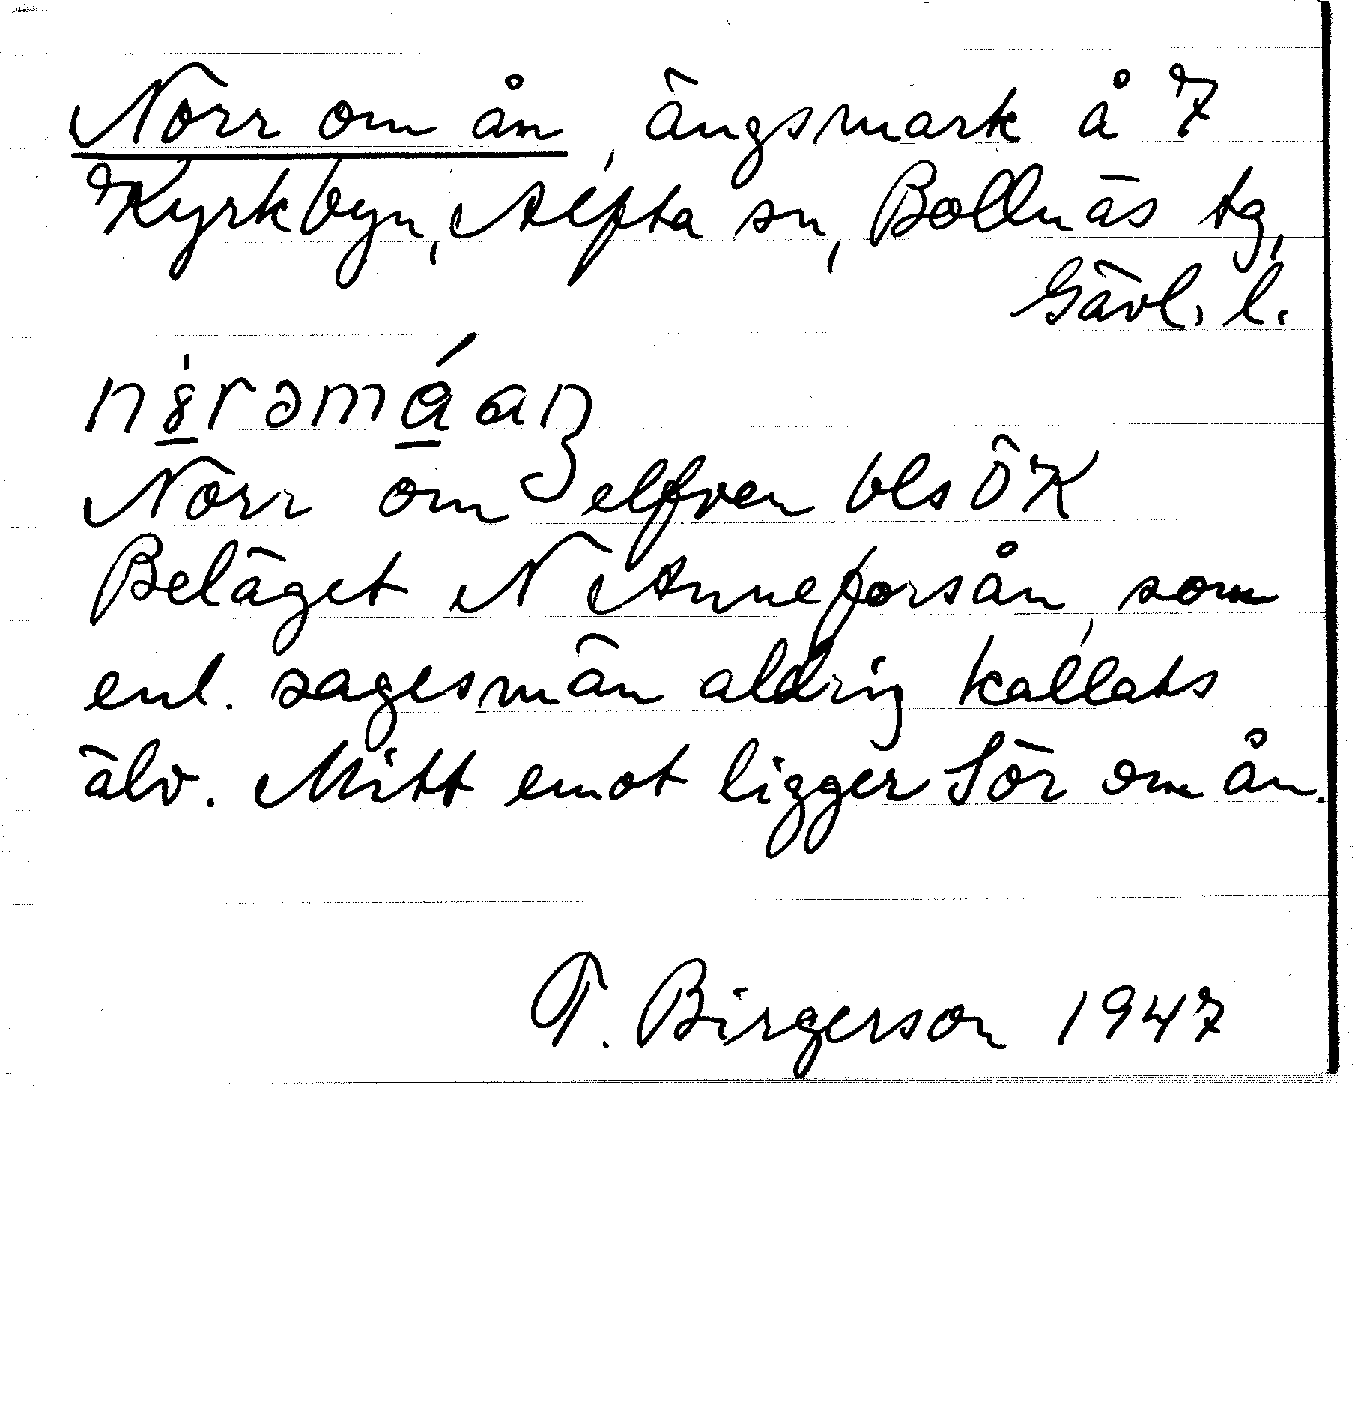 Norr om ån, ängsmark å 7
Kyrkbyn, Alfta sn, Bollnäs tg,
Gävl. l.
Norr om elfven bls ÖK
Beläget N Anneforsån, som
enl. sagesmän aldrig kallats
älv. Mitt emot ligger Sör om ån.
T. Birgerson 1947